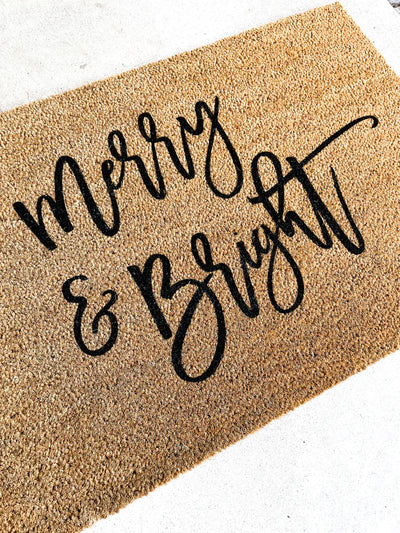 Merry
& Bright